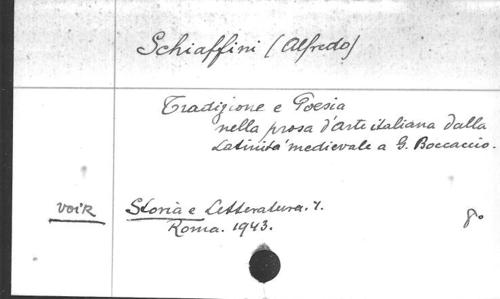 Schiaffini (Alfredo)
Tradizione e Poesia
nella prosa d'arte italiana dalla
Latinità medievale a G. Boccaccio.
VOIR Storia e Letteratura. 1.
Roma. 1943. 8º